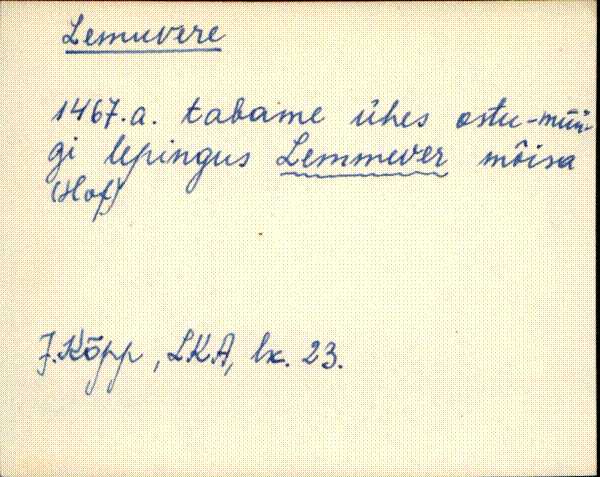 Lemuvere
1467.a. tabame ühes ostu-müü-
gi lepingus Lemmever mõisa
(Hof)
J. Kõpp, LKA, lk. 23.